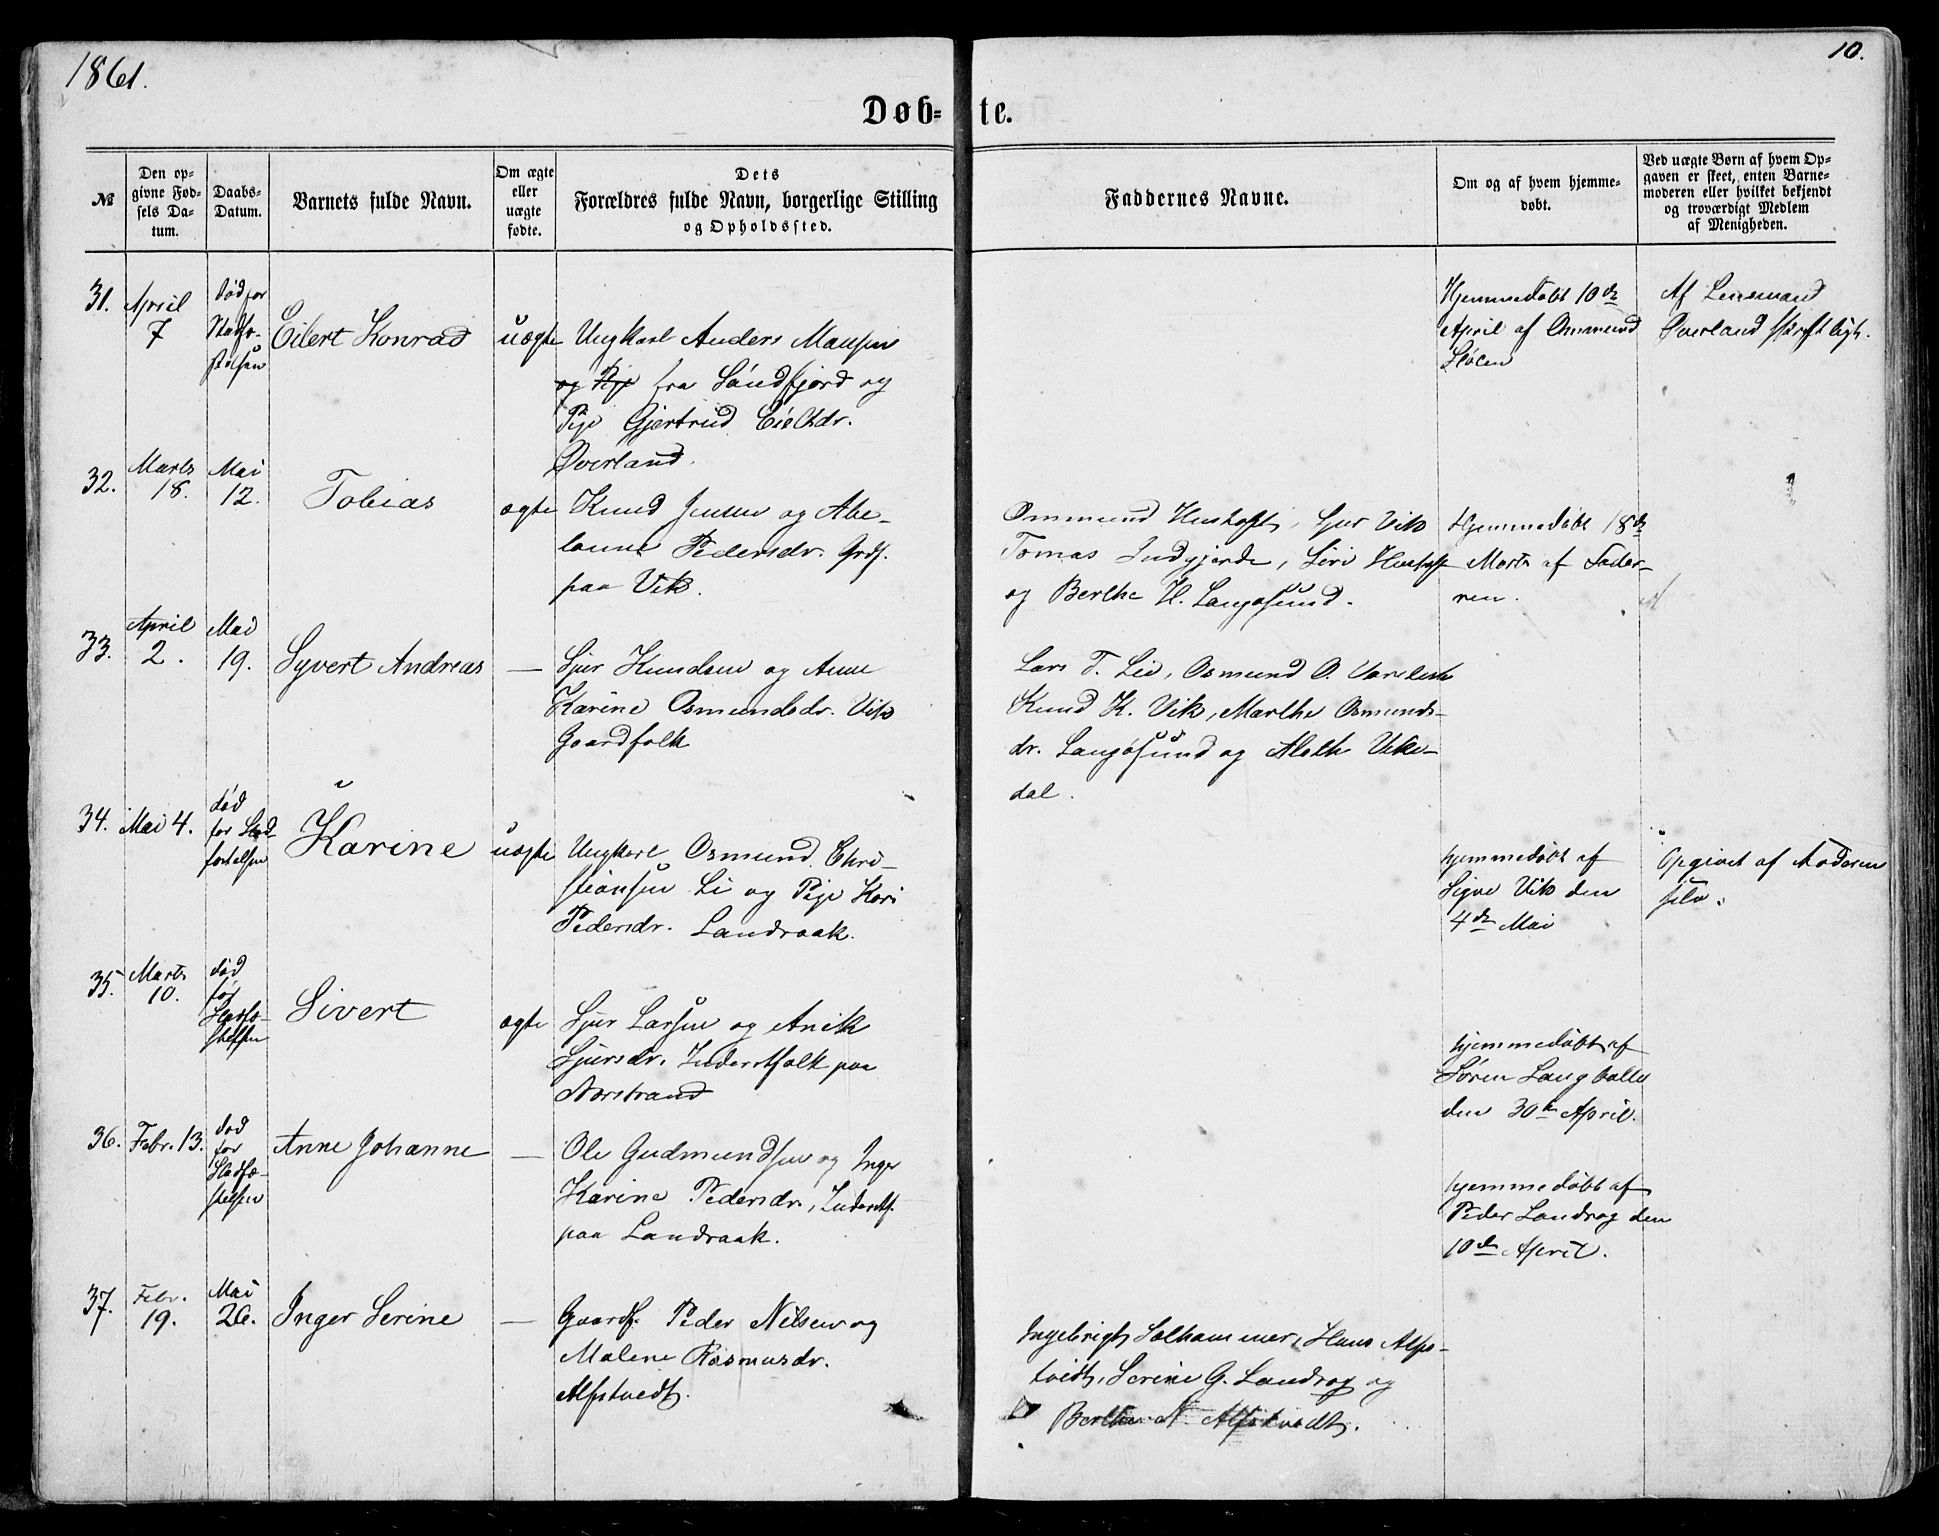 1861.
10.
Døb-
te.
№
Den op-
givne Fød-
sels Da-
tum.
Daabs-
Datum.
Barnets fulde Navn.
Om ægte
eller
uægte
fødte.
Dets
Forældres fulde Navn, borgerlige Stilling
og Opholdssted.
Faddernes Navne.
Om og af hvem hjemme-
døbt.
Ved uægte Børn af hvem Op-
gaven er skeet, enten Barne-
moderen eller hvilket bekjendt
og troværdigt Medlem
af Menigheden.
31.
April
7
død før
Stadfæ-
stelsen
Eilert Konrad
uægte
Ungkarl Anders Monsen
og Pige fra Søndfjord og
Pige Gjertrud
Øverland.
Hjemmedøbt 10de
April af Ommund
Stølen
Af Lensmand
Øverland skriftligt.
32.
Marts
18.
Mai
12.
Tobias
ægte
Knud Jensen og Abe-
lonne Pedersdr. Grdf.
paa Vik.
Ommund Hustoft, Sjur Vik
Tomas Indgjerde, Siri Hustoft
og Berthe H. Langøsund.
Hjemmedøbt 18de
Marts af Fade-
ren.
33.
April
2.
Mai
19.
Syvert Andreas
—
Sjur Knudsen og Anne
Karine Osmundsdr. Vik
Gaardfolk
Lars T. Lie, Osmund O.
Knud K. Vik, Marthe Osmunds-
dr. Langøsund og Aleth Vike-
dal.
34.
Mai 4.
død
før Stad-
festelsen
Karine
uægte
Ungkarl Osmund Chri-
stiansen Li og Pige Kari
Pedersdr. Landraak.
hjemmedøbt af
Signe Vik den
4de Mai
Opgivet af Moderen
selv.
35.
Marts
10.
død
før
Stadfæ-
stelsen
Sivert
ægte
Sjur Larsen og Anik
Sjursdr. Inderstfolk paa
Norstrand
hjemmedøbt af
Søren Langballe
den 30te April.
36.
Febr. 13.
død
før
Stadfæ-
stelsen
Anne Johanne
—
Ole Gudmundsen og Inger
Karine Pedersdr., Inderstf.
paa Landraak.
hjemmedøbt af
Peder Landrag den
10de April.
37.
Febr.
19.
Mai
26.
Inger Serine
—
Gaardf. Peder Nilsen og
Malene Rasmusdr.
Alfstvedt.
Ingebrigt Solhammer, Hans Alfs-
tvedt, Serine G. Landrog og
Berthe N. Alfstvedt.